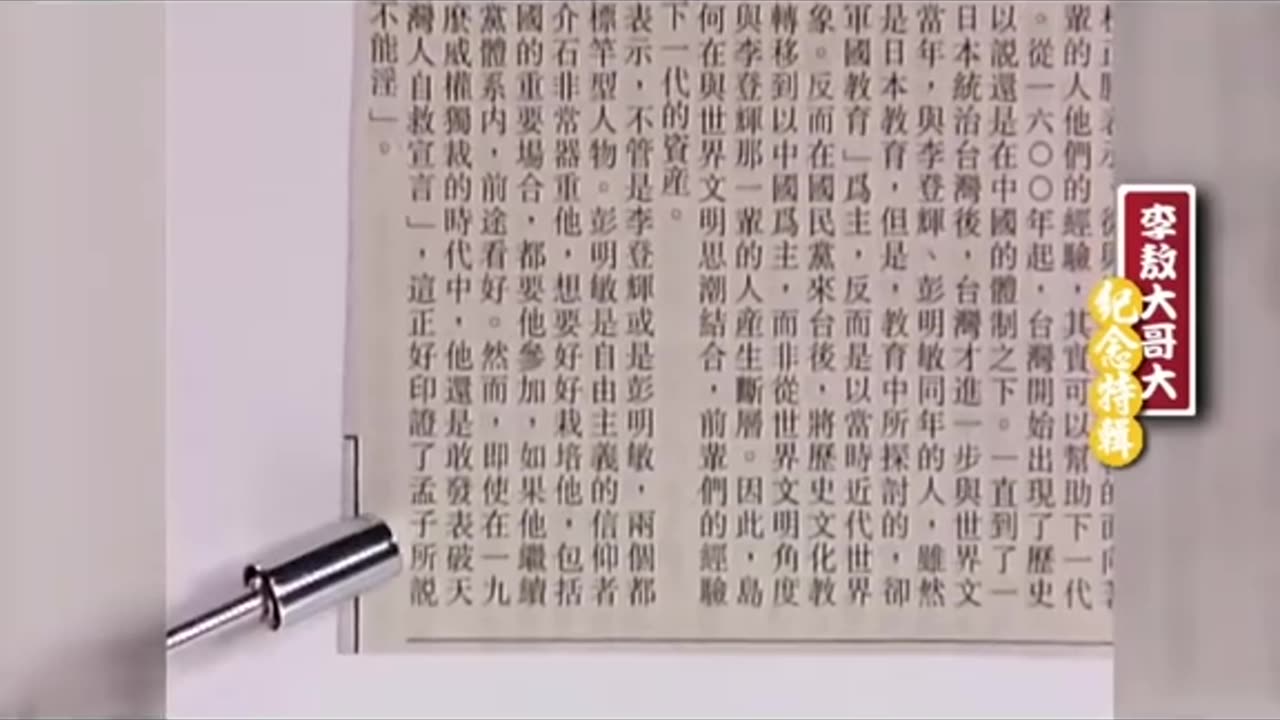 輩的人他們的經驗，其實可以幫助下一代
。從一六〇〇年起，台灣開始出現了歷史
以説還是在中國的體制之下。一直到了一
日本統治台灣後，台灣才進一步與世界文
當年，與李登輝、彭明敏同年的人，雖然
是日本教育，但是，教育中所探討的，卻
軍國教育」爲主，反而是以當時近代世界
象。反而在國民黨來台後，將歷史文化教
轉移到以中國爲主，而非從世界文明角度
與李登輝那一輩的人産生斷層。因此，島
何在與世界文明思潮結合，前輩們的經驗
下一代的資産。
表示，不管是李登輝或是彭明敏，兩個都
標竿型人物。彭明敏是自由主義的信仰者
介石非常器重他，想要好好栽培他，包括
國的重要場合，都要他參加，如果他繼續
黨體系内，前途看好。然而，即使在一九
麽威權獨裁的時代中，他還是敢發表破天
灣人自救宣言」，這正好印證了孟子所説
不能淫」。
李敖大哥大
紀念特輯